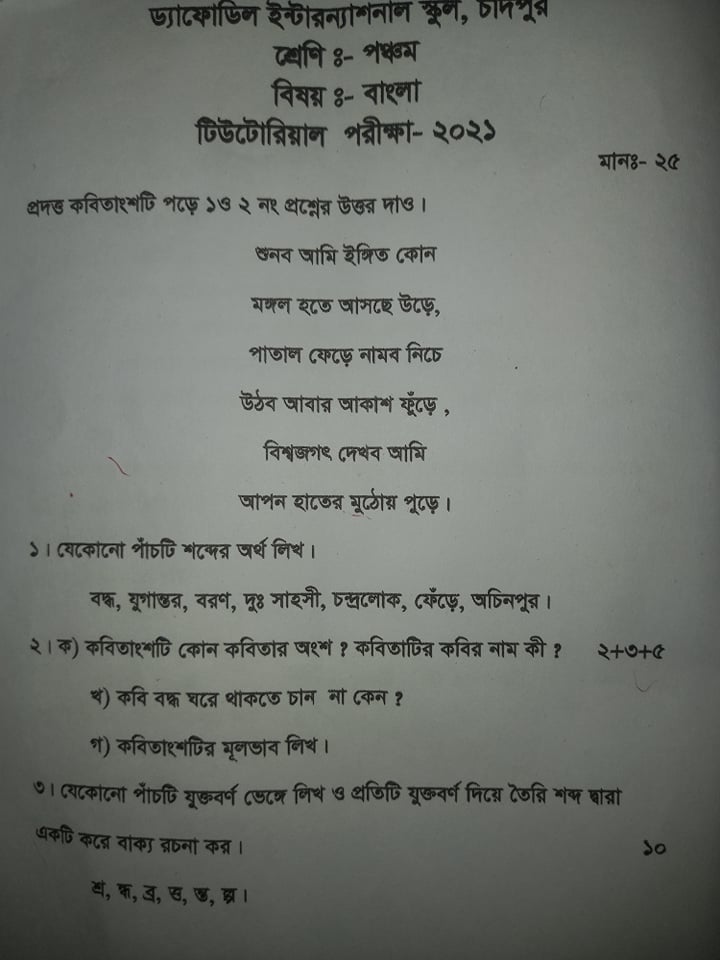 ড্যাফোডিল ইন্টারন্যাশনাল স্কুল, চাঁদপুর
শ্রেণি ঃ- পঞ্চম
বিষয় ঃ- বাংলা
টিউটোরিয়াল পরীক্ষা- ২০২১
মানঃ- ২৫
প্রদত্ত কবিতাংশটি পড়ে ১ও ২ নং প্রশ্নের উত্তর দাও।
শুনব আমি ইঙ্গিত কোন
মঙ্গল হতে আসছে উড়ে,
পাতাল ফেড়ে নামব নিচে
উঠব আবার আকাশ ফুঁড়ে ,
বিশ্বজগৎ দেখব আমি
আপন হাতের মুঠোয় পুড়ে।
১। যেকোনো পাঁচটি শব্দের অর্থ লিখ।
বদ্ধ, যুগান্তর, বরণ, দুঃ সাহসী, চন্দ্রলোক, ফেঁড়ে, অচিনপুর।
২। ক) কবিতাংশটি কোন কবিতার অংশ ? কবিতাটির কবির নাম কী ? ২+৩+৫
খ) কবি বদ্ধ ঘরে থাকতে চান না কেন ?
গ) কবিতাংশটির মূলভাব লিখ।
৩। যেকোনো পাঁচটি যুক্তবর্ণ ভেঙ্গে লিখ ও প্রতিটি যুক্তবর্ণ দিয়ে তৈরি শব্দ দ্বারা
একটি করে বাক্য রচনা কর। ১০